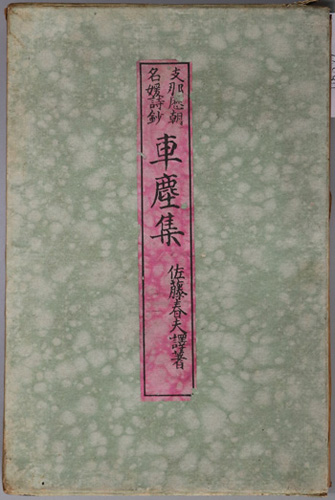 支那歴朝
名媛詩鈔
車塵集
佐藤春夫譯著